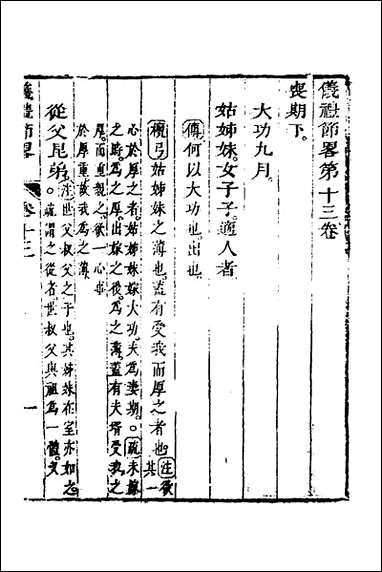 儀禮節畧第十三卷
喪期下。
大功九月。
姑姊妹。女子子。適人者。
傳何以大功也。出也。
檀弓姑姊妹之薄也。葢有受我而厚之者也。注欲其一
心於厚之者。姑姊妹嫁大功。夫爲妻期。○疏未嫁
之時。爲之厚。出嫁之後。爲之薄。葢有夫壻受我之
厚。而重親之。欲一心事
於厚重。故我爲之薄。
從父昆弟。注世父叔父之子也。其姊妹在室亦如之
。○疏謂之從者。世叔父與祖爲一體。又
儀禮節畧
卷十三
一